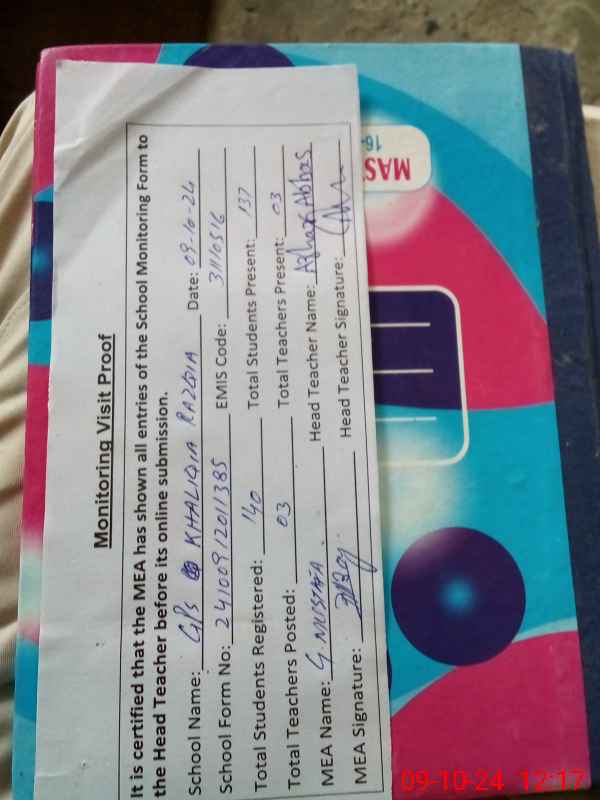 Monitoring Visit Proof
It is certified that the MEA has shown all entries of the School Monitoring Form to
the Head Teacher before its online submission.
School Name: GPS KHALIQIA RAZVIA Date: 09-10-24
School Form No: 24100912011385 EMIS Code: 31110516
Total Students Registered: 140 Total Students Present: 137
Total Teachers Posted: 03 Total Teachers Present: 03
MEA Name: G. MUSTAFA Head Teacher Name: Azhar Abbas
MEA Signature: Head Teacher Signature:
MAS
16-
09-10-24 12:17